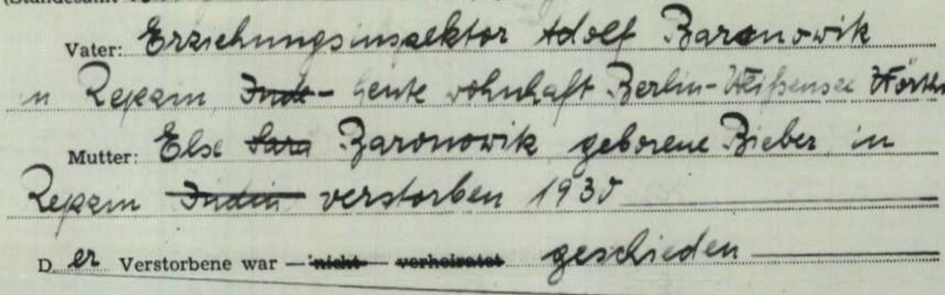 Vater: Erziehungsinspektor Adolf Baronowik
in Repzin, Jude - heute wohnhaft Berlin-Weißensee
Mutter: Else Sara Baronowik geborene Bieber in
Repzin Jüdin verstorben 1930
D er Verstorbene war – nicht – verheiratet geschieden